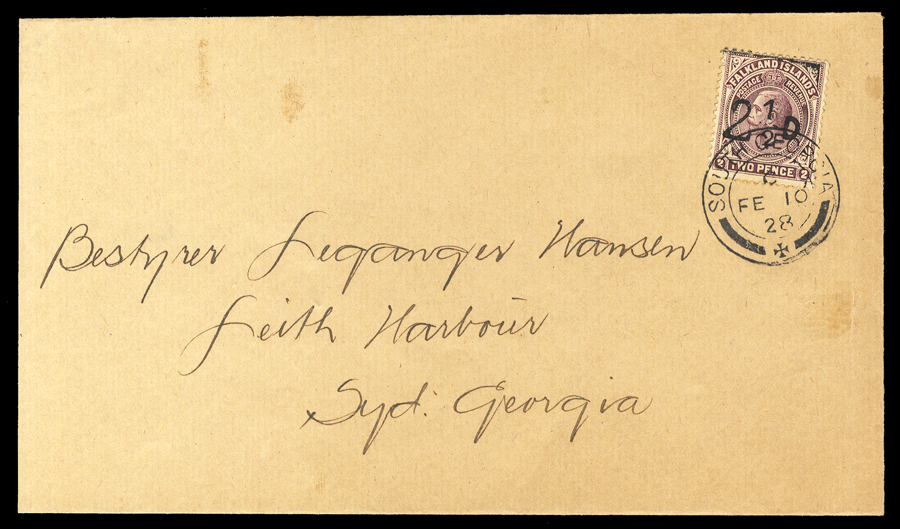 FALKLAND ISLANDS
POSTAGE REVENUE
2 1/2 D
2 TWO PENCE 2
SOUTH GEORGIA
FE 10
28
Bestyrer Leganger Hansen
Leith Harbour
Syd. Georgia